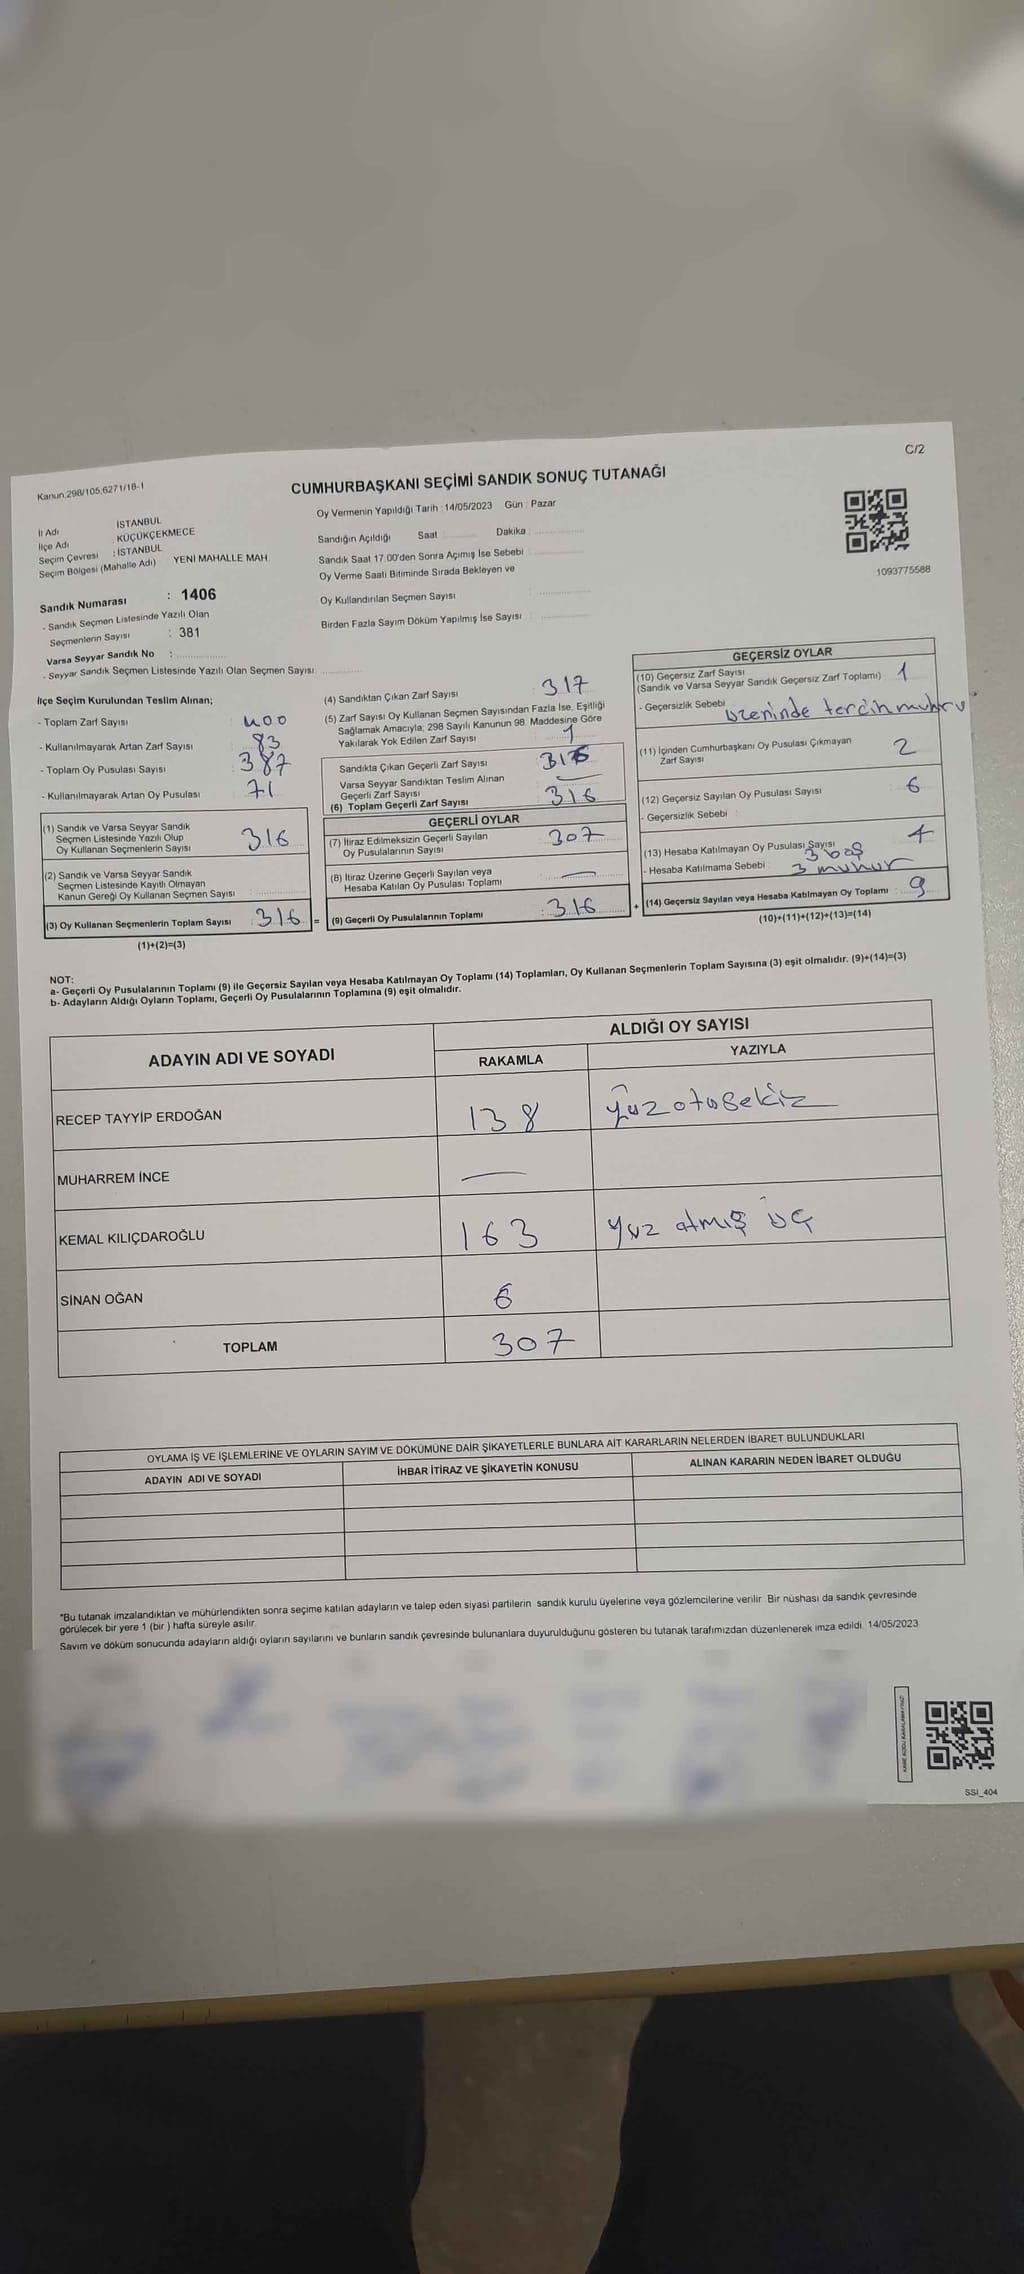 C/2
Kanun:298/105;6271/18-1
CUMHURBAŞKANI SEÇİMİ SANDIK SONUÇ TUTANAĞI
İl Adı : İSTANBUL
İlçe Adı : KÜÇÜKÇEKMECE
Seçim Çevresi : İSTANBUL
Seçim Bölgesi (Mahalle Adı) YENİ MAHALLE MAH.
Sandık Numarası : 1406
- Sandık Seçmen Listesinde Yazılı Olan
Seçmenlerin Sayısı : 381
Varsa Seyyar Sandık No :
- Seyyar Sandık Seçmen Listesinde Yazılı Olan Seçmen Sayısı:
Oy Vermenin Yapıldığı Tarih : 14/05/2023 Gün : Pazar
Sandığın Açıldığı Saat Dakika
Sandık Saat 17:00'den Sonra Açımış İse Sebebi
Oy Verme Saati Bitiminde Sırada Bekleyen ve
Oy Kullandırılan Seçmen Sayısı :
Birden Fazla Sayım Döküm Yapılmış İse Sayısı :
1093775588
İlçe Seçim Kurulundan Teslim Alınan;
- Toplam Zarf Sayısı : 400
- Kullanılmayarak Artan Zarf Sayısı : 83
- Toplam Oy Pusulası Sayısı : 387
- Kullanılmayarak Artan Oy Pusulası : 71
(1) Sandık ve Varsa Seyyar Sandık
Seçmen Listesinde Yazılı Olup
Oy Kullanan Seçmenlerin Sayısı : 316
(2) Sandık ve Varsa Seyyar Sandık
Seçmen Listesinde Kayıtlı Olmayan
Kanun Gereği Oy Kullanan Seçmen Sayısı :
(3) Oy Kullanan Seçmenlerin Toplam Sayısı : 316 =
(1)+(2)=(3)
(4) Sandıktan Çıkan Zarf Sayısı : 317
(5) Zarf Sayısı Oy Kullanan Seçmen Sayısından Fazla İse, Eşitliği
Sağlamak Amacıyla; 298 Sayılı Kanunun 98. Maddesine Göre
Yakılarak Yok Edilen Zarf Sayısı : 1
Sandıkta Çıkan Geçerli Zarf Sayısı : 316
Varsa Seyyar Sandıktan Teslim Alınan
Geçerli Zarf Sayısı : —
(6) Toplam Geçerli Zarf Sayısı : 316
GEÇERLİ OYLAR
(7) İtiraz Edilmeksizin Geçerli Sayılan
Oy Pusulalarının Sayısı : 307
(8) İtiraz Üzerine Geçerli Sayılan veya
Hesaba Katılan Oy Pusulası Toplamı : —
(9) Geçerli Oy Pusulalarının Toplamı : 316 +
GEÇERSİZ OYLAR
(10) Geçersiz Zarf Sayısı
(Sandık ve Varsa Seyyar Sandık Geçersiz Zarf Toplamı) : 1
- Geçersizlik Sebebi : üzerinde tercih
(11) İçinden Cumhurbaşkanı Oy Pusulası Çıkmayan
Zarf Sayısı : 2
(12) Geçersiz Sayılan Oy Pusulası Sayısı : 6
- Geçersizlik Sebebi :
(13) Hesaba Katılmayan Oy Pusulası Sayısı 4
3 boş
- Hesaba Katılmama Sebebi : 3 mühür
(14) Geçersiz Sayılan veya Hesaba Katılmayan Oy Toplamı : 9
(10)+(11)+(12)+(13)=(14)
NOT:
a- Geçerli Oy Pusulalarının Toplamı (9) ile Geçersiz Sayılan veya Hesaba Katılmayan Oy Toplamı (14) Toplamları, Oy Kullanan Seçmenlerin Toplam Sayısına (3) eşit olmalıdır. (9)+(14)=(3)
b- Adayların Aldığı Oyların Toplamı, Geçerli Oy Pusulalarının Toplamına (9) eşit olmalıdır.
ADAYIN ADI VE SOYADI
ALDIĞI OY SAYISI
RAKAMLA YAZIYLA
RECEP TAYYİP ERDOĞAN 138 yüzotusekiz
MUHARREM İNCE —
KEMAL KILIÇDAROĞLU 163 yüz atmış üç
SİNAN OĞAN 6
TOPLAM 307
OYLAMA İŞ VE İŞLEMLERİNE VE OYLARIN SAYIM VE DÖKÜMÜNE DAİR ŞİKAYETLERLE BUNLARA AİT KARARLARIN NELERDEN İBARET BULUNDUKLARI
ADAYIN ADI VE SOYADI İHBAR İTİRAZ VE ŞİKAYETİN KONUSU ALINAN KARARIN NEDEN İBARET OLDUĞU
*Bu tutanak imzalandıktan ve mühürlendikten sonra seçime katılan adayların ve talep eden siyasi partilerin sandık kurulu üyelerine veya gözlemcilerine verilir. Bir nüshası da sandık çevresinde
görülecek bir yere 1 (bir) hafta süreyle asılır.
Sayım ve döküm sonucunda adayların aldığı oyların sayılarını ve bunların sandık çevresinde bulunanlara duyurulduğunu gösteren bu tutanak tarafımızdan düzenlenerek imza edildi. 14/05/2023
SSI_404